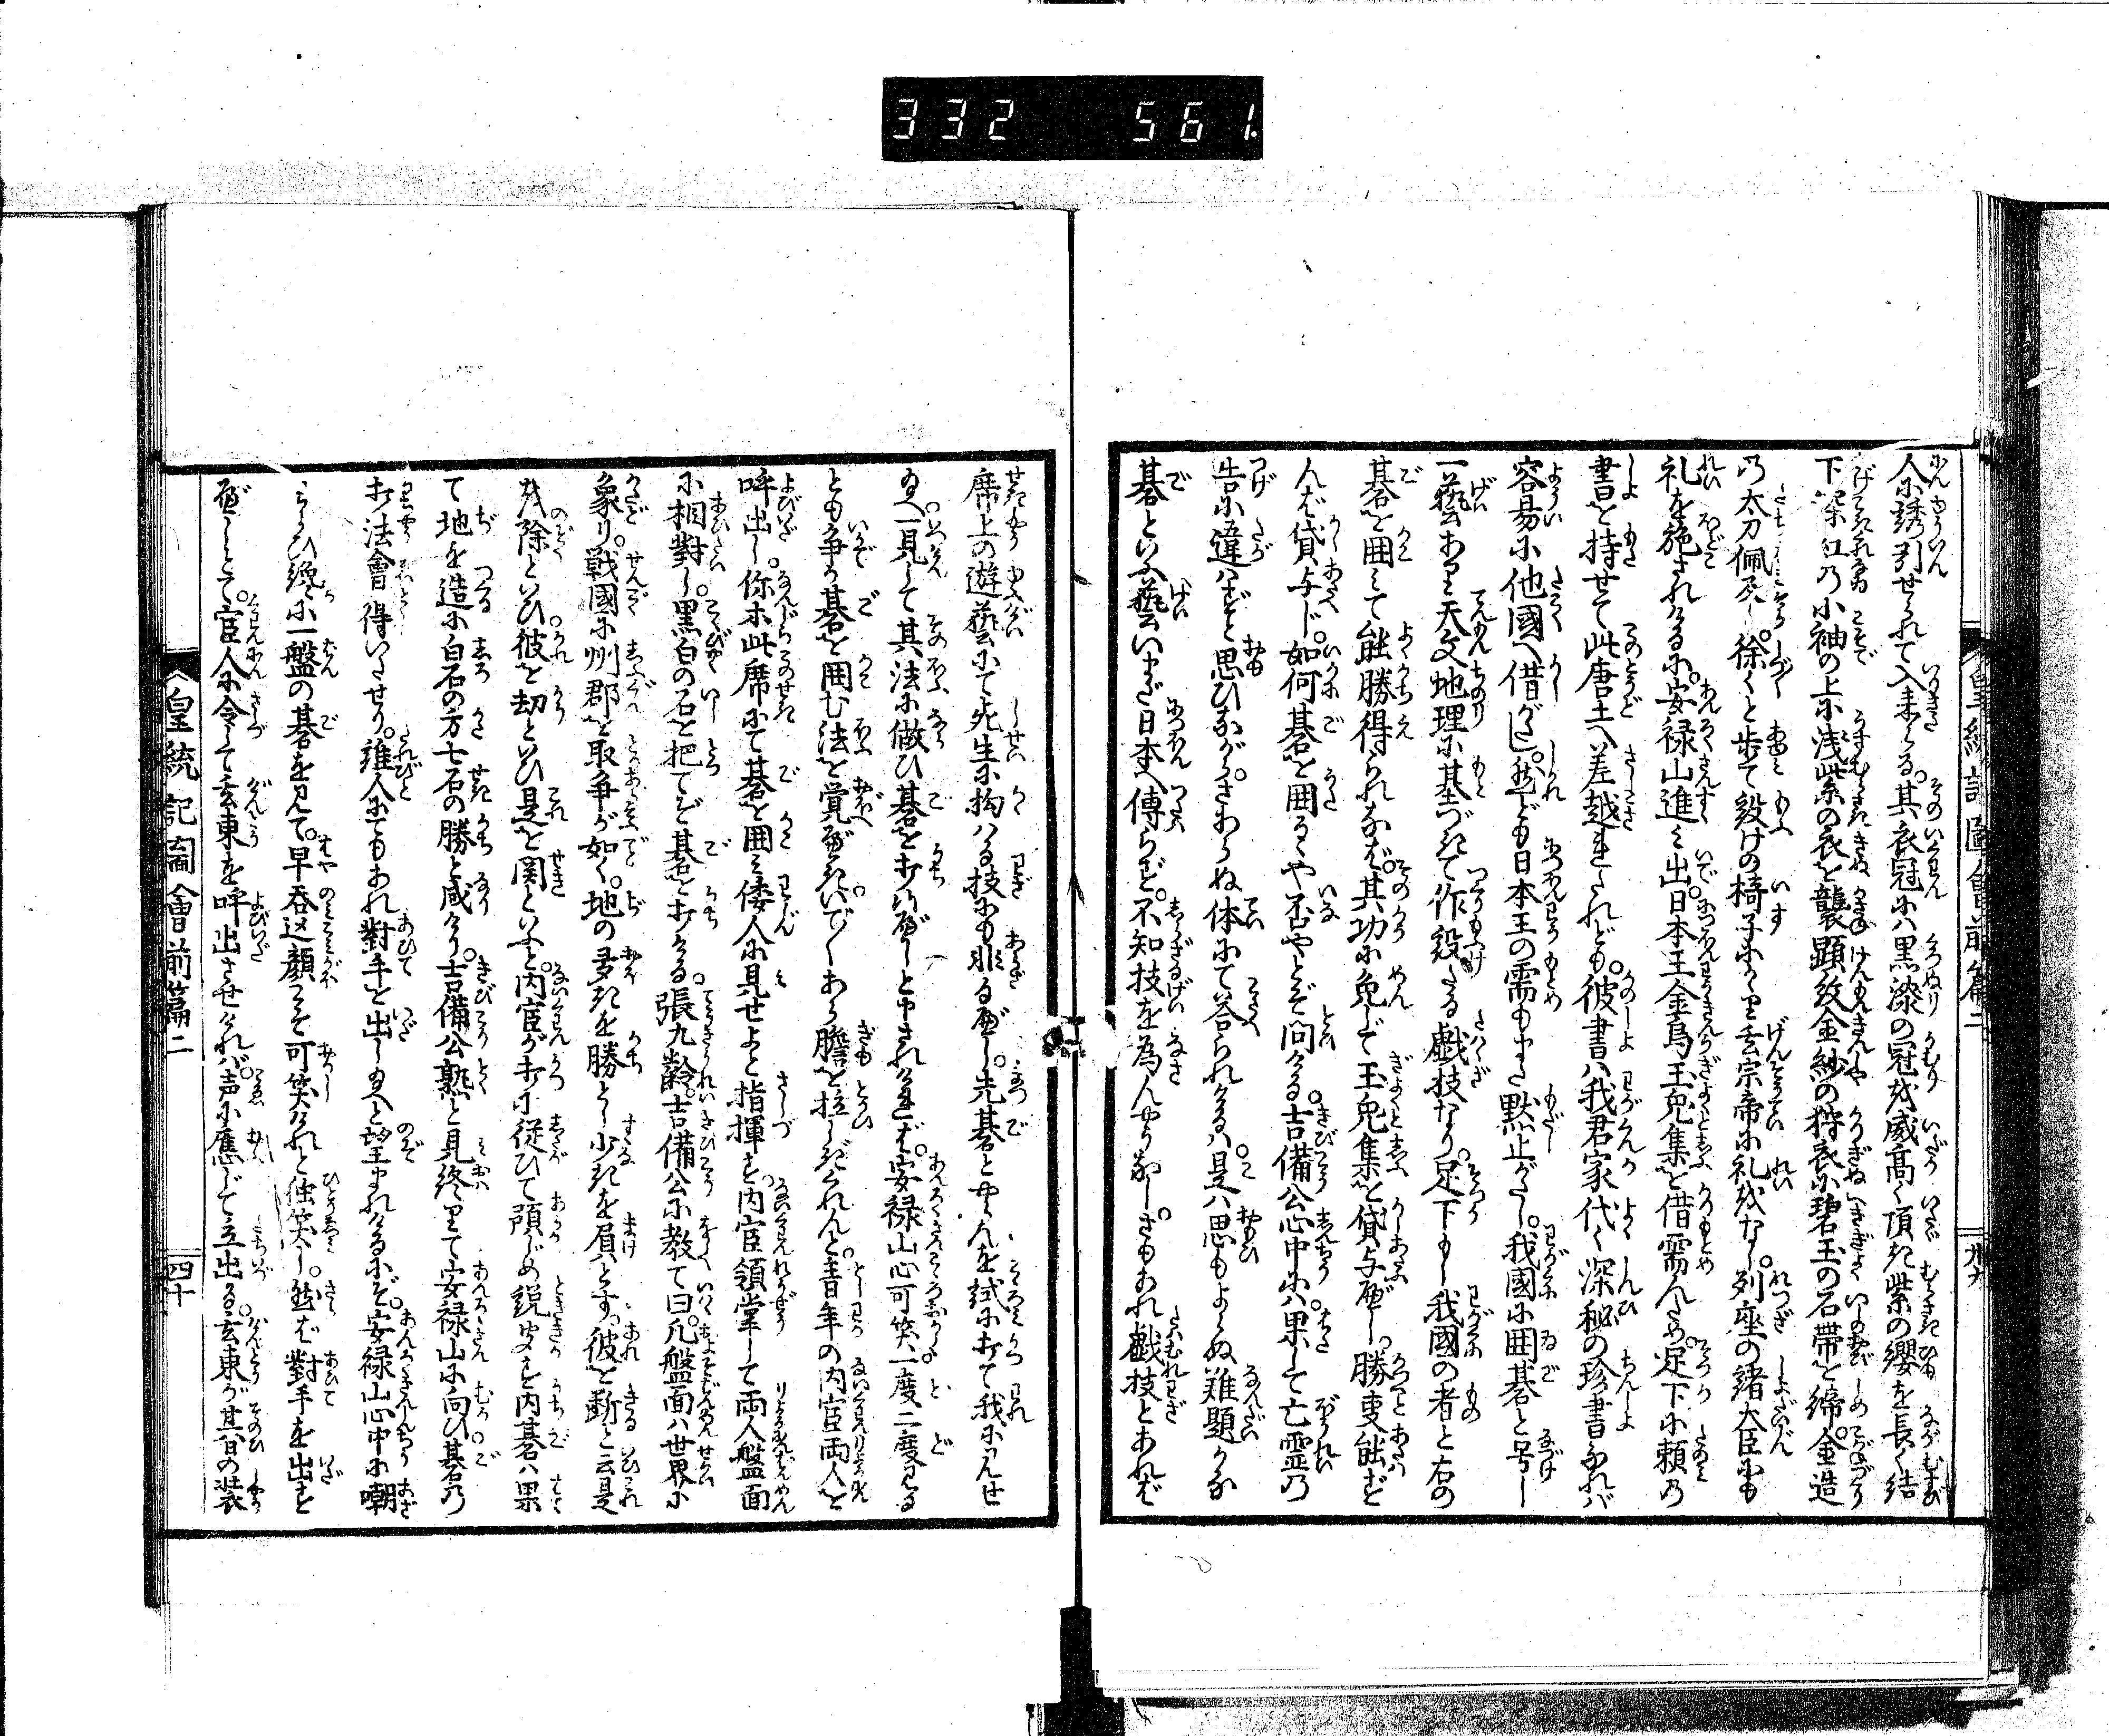 332 561.
人に誘引せられて入来る。其衣冠には黒漆の冠威高く頂き紫の纓を長く結
下深紅の小袖の上に浅紫の衣を襲顕紋金紗の狩衣に碧玉の石帯を締。金造
の太刀佩て。徐々と歩て設けの椅子にかゝり玄宗帝に礼をなし。列座の諸大臣にも
礼を施されけるに。安禄山進み出。日本王金烏玉兔集を借需んため。足下に頼の
書を持せて此唐土へ差越されたれども。彼書は我君家代々深秘の珍書なれば
容易に他國へ借がたし。然ども日本王の需もまた黙止がたし。我國に囲碁と号し
一藝あり天文地理に基づきて作設たる戯技なり。足下もし我國の者と右の
碁を囲みて能勝得られなば。其功に免じて玉兔集を貸与べし。勝事能ずと
んば貸与じ。如何碁を囲るゝや否やとぞ問ける。吉備公心中に。果して亡霊の
告に違はずと思ひながら。さわらぬ体にて答られけるは。是は思もよらぬ難題かな
碁といふ藝いまだ日本へ傳らず。不知技を為んやうなし。さもあれ戯技とあれば
席上の遊藝にて死生に拘はる技にも非るべし。先碁とやらんを試に打て我に見せ
給へ。一見して其法に做ひ碁を打候べしと申されければ。安禄山心可笑。一度二度見る
とも争か碁を囲む法を覚べき。いで〳〵あら膽を拉しぎくれんと。青年の内官両人を
呼出し。你等此席にて碁を囲み倭人に見せよと指揮す。内官領掌して両人盤面
に相對し。黒白の石を把てぞ碁を打ける。張九齢。吉備公に教て曰。凡盤面は世界に
象り。戦國に州郡を取争が如く。地の多きを勝とし少きを眉とす。彼を断と云是
を除といひ彼を劫といひ是を関といふと。内官が打に従ひて預じめ説聞す内碁は果
て地を造に白石の方七石の勝と成けり。吉備公熟と見終りて安禄山に向ひ碁の
打法會得いたせり。誰人にてもあれ對手を出し給へと望まれけるにぞ。安禄山心中に嘲
わらひ纔に一盤の碁を見て。早呑込顔こそ可笑けれと独笑し。然ば對手を出す
べしとて。官人に令して玄東を呼出させければ。声に應じて立出る玄東が其日の装
皇統記圖會前篇二
四十